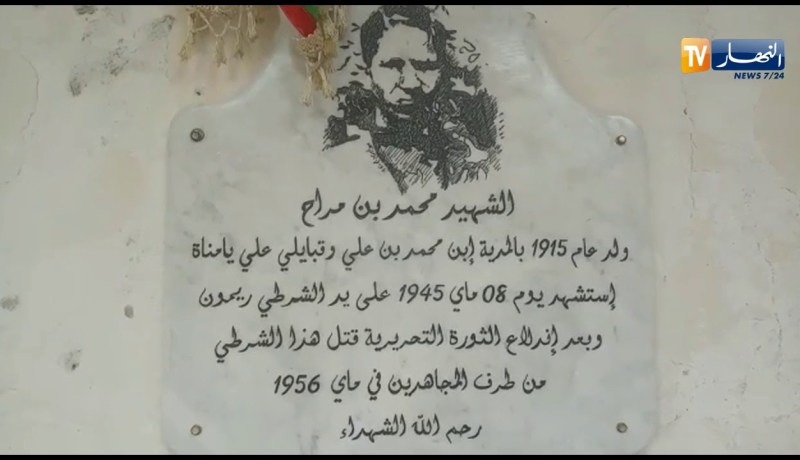 النهار TV
NEWS 7/24
الشهيد محمد بن مراح
ولد عام 1915 بالمدية إبن محمد بن علي وقبايلي علي يامناة
إستشهد يوم 08 ماي 1945 على يد الشرطي ريمون
وبعد إندلاع الثورة التحريرية قتل هذا الشرطي
من طرف المجاهدين في ماي 1956
رحم الله الشهداء